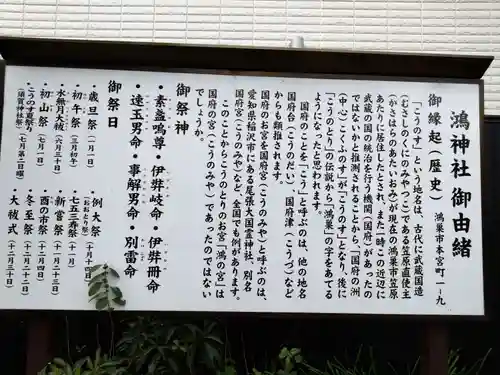 鴻神社御由緒
鴻巣市本宮町一ー九
御縁起(歴史)
「こうのす」という地名は、古代に武蔵国造
(むさしのくにのみやつこ)である笠原直使主
(かさはらのあたいおみ)が現在の鴻巣市笠原
あたりに居住したとされ、また一時この近辺に
武蔵の国の統治を行う機関(国府)があったの
ではないかと推測されることから、「国府の洲
(中心)こくふのす」が「こうのす」となり、後に
「こうのとり」の伝説から「鴻巣」の字をあてる
ようになったと思われます。
国府のことを「こう」と呼ぶのは、他の地名
国府台(こうのだい)、国府津(こうづ)など
からも類推されます。
国府のお宮を国府宮(こうのみや)と呼ぶのは、
愛知県稲沢市にある尾張大国霊神社、別名
国府宮(こうのみや)など、全国でも例があります。
このことからこうのとりのお宮「鴻の宮」は
国府の宮(こうのみや)であったのではない
でしょうか。
御祭神
・素盞嗚尊・伊弉岐命・伊弉冊命
・速玉男命・事解男命・別雷命
御祭日
・歳旦祭(一月一日)
・初午祭(三月初午)
・水無月大祓(六月三十日)
・初山祭(七月一日)
・こうのす夏祭り
(須賀神社祭)(七月第二日曜)
例大祭
(おおとり祭)(十月十四日)
七五三寿祭(十一月)
新嘗祭(十一月二十三日)
酉の市祭(十二月四日)
冬至祭(十二月二十二日)
大祓式(十二月三十日)